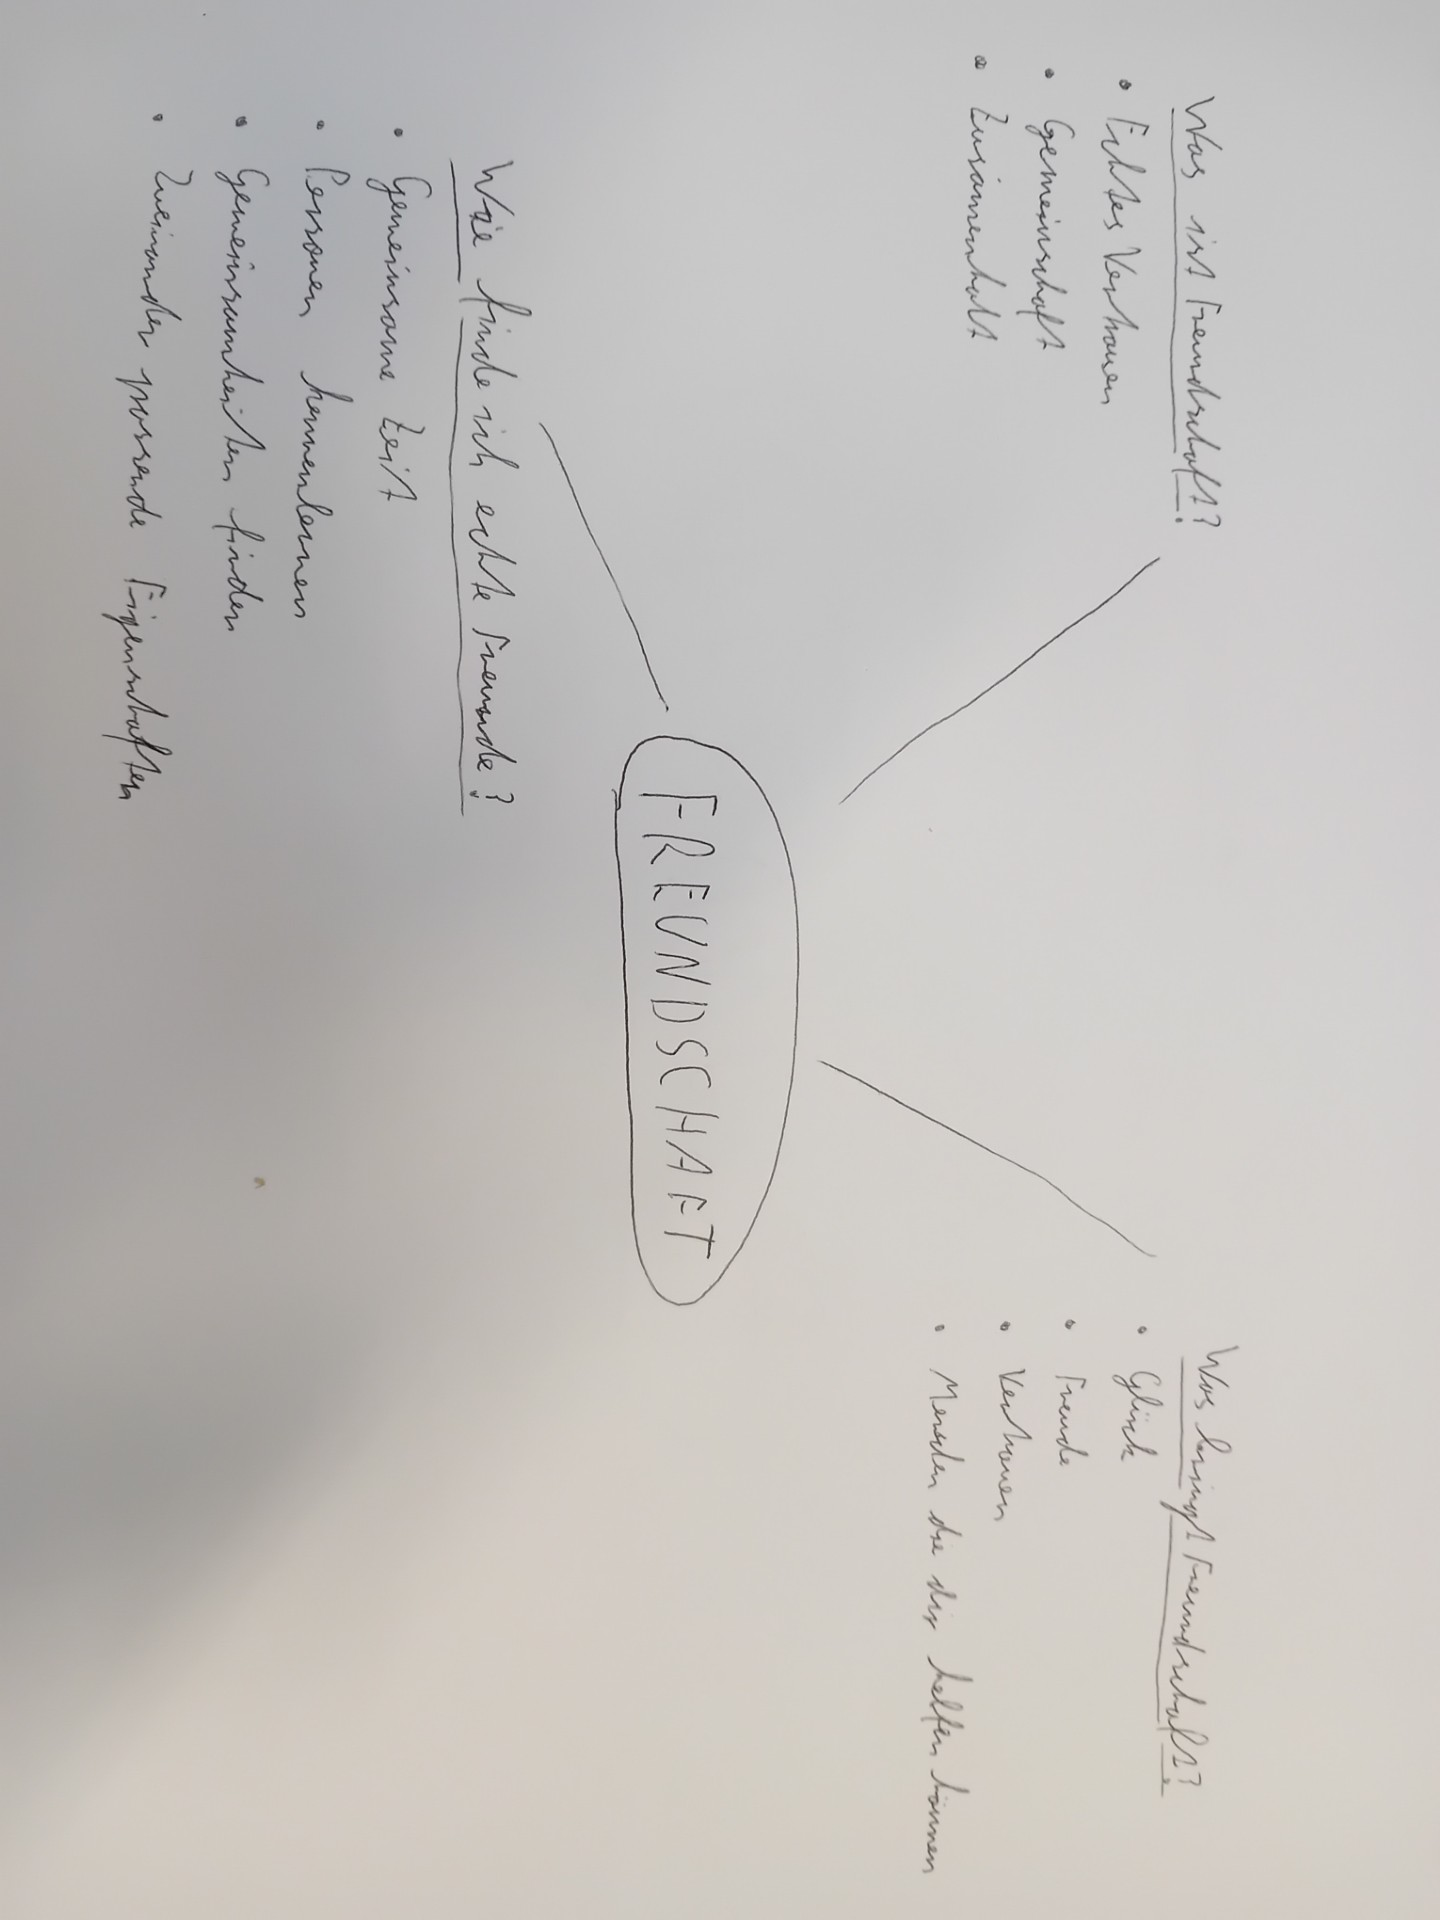 Was ist Freundschaft?
• Echtes Vertrauen
• Gemeinschaft
• Zusammenhalt
Was bringt Freundschaft?
• Glück
• Freude
• Vertrauen
• Menschen die dir helfen können
FREUNDSCHAFT
Wie finde ich echte Freunde?
• Gemeinsame Zeit
• Personen kennenlernen
• Gemeinsamkeiten finden
• Zueinander passende Eigenschaften